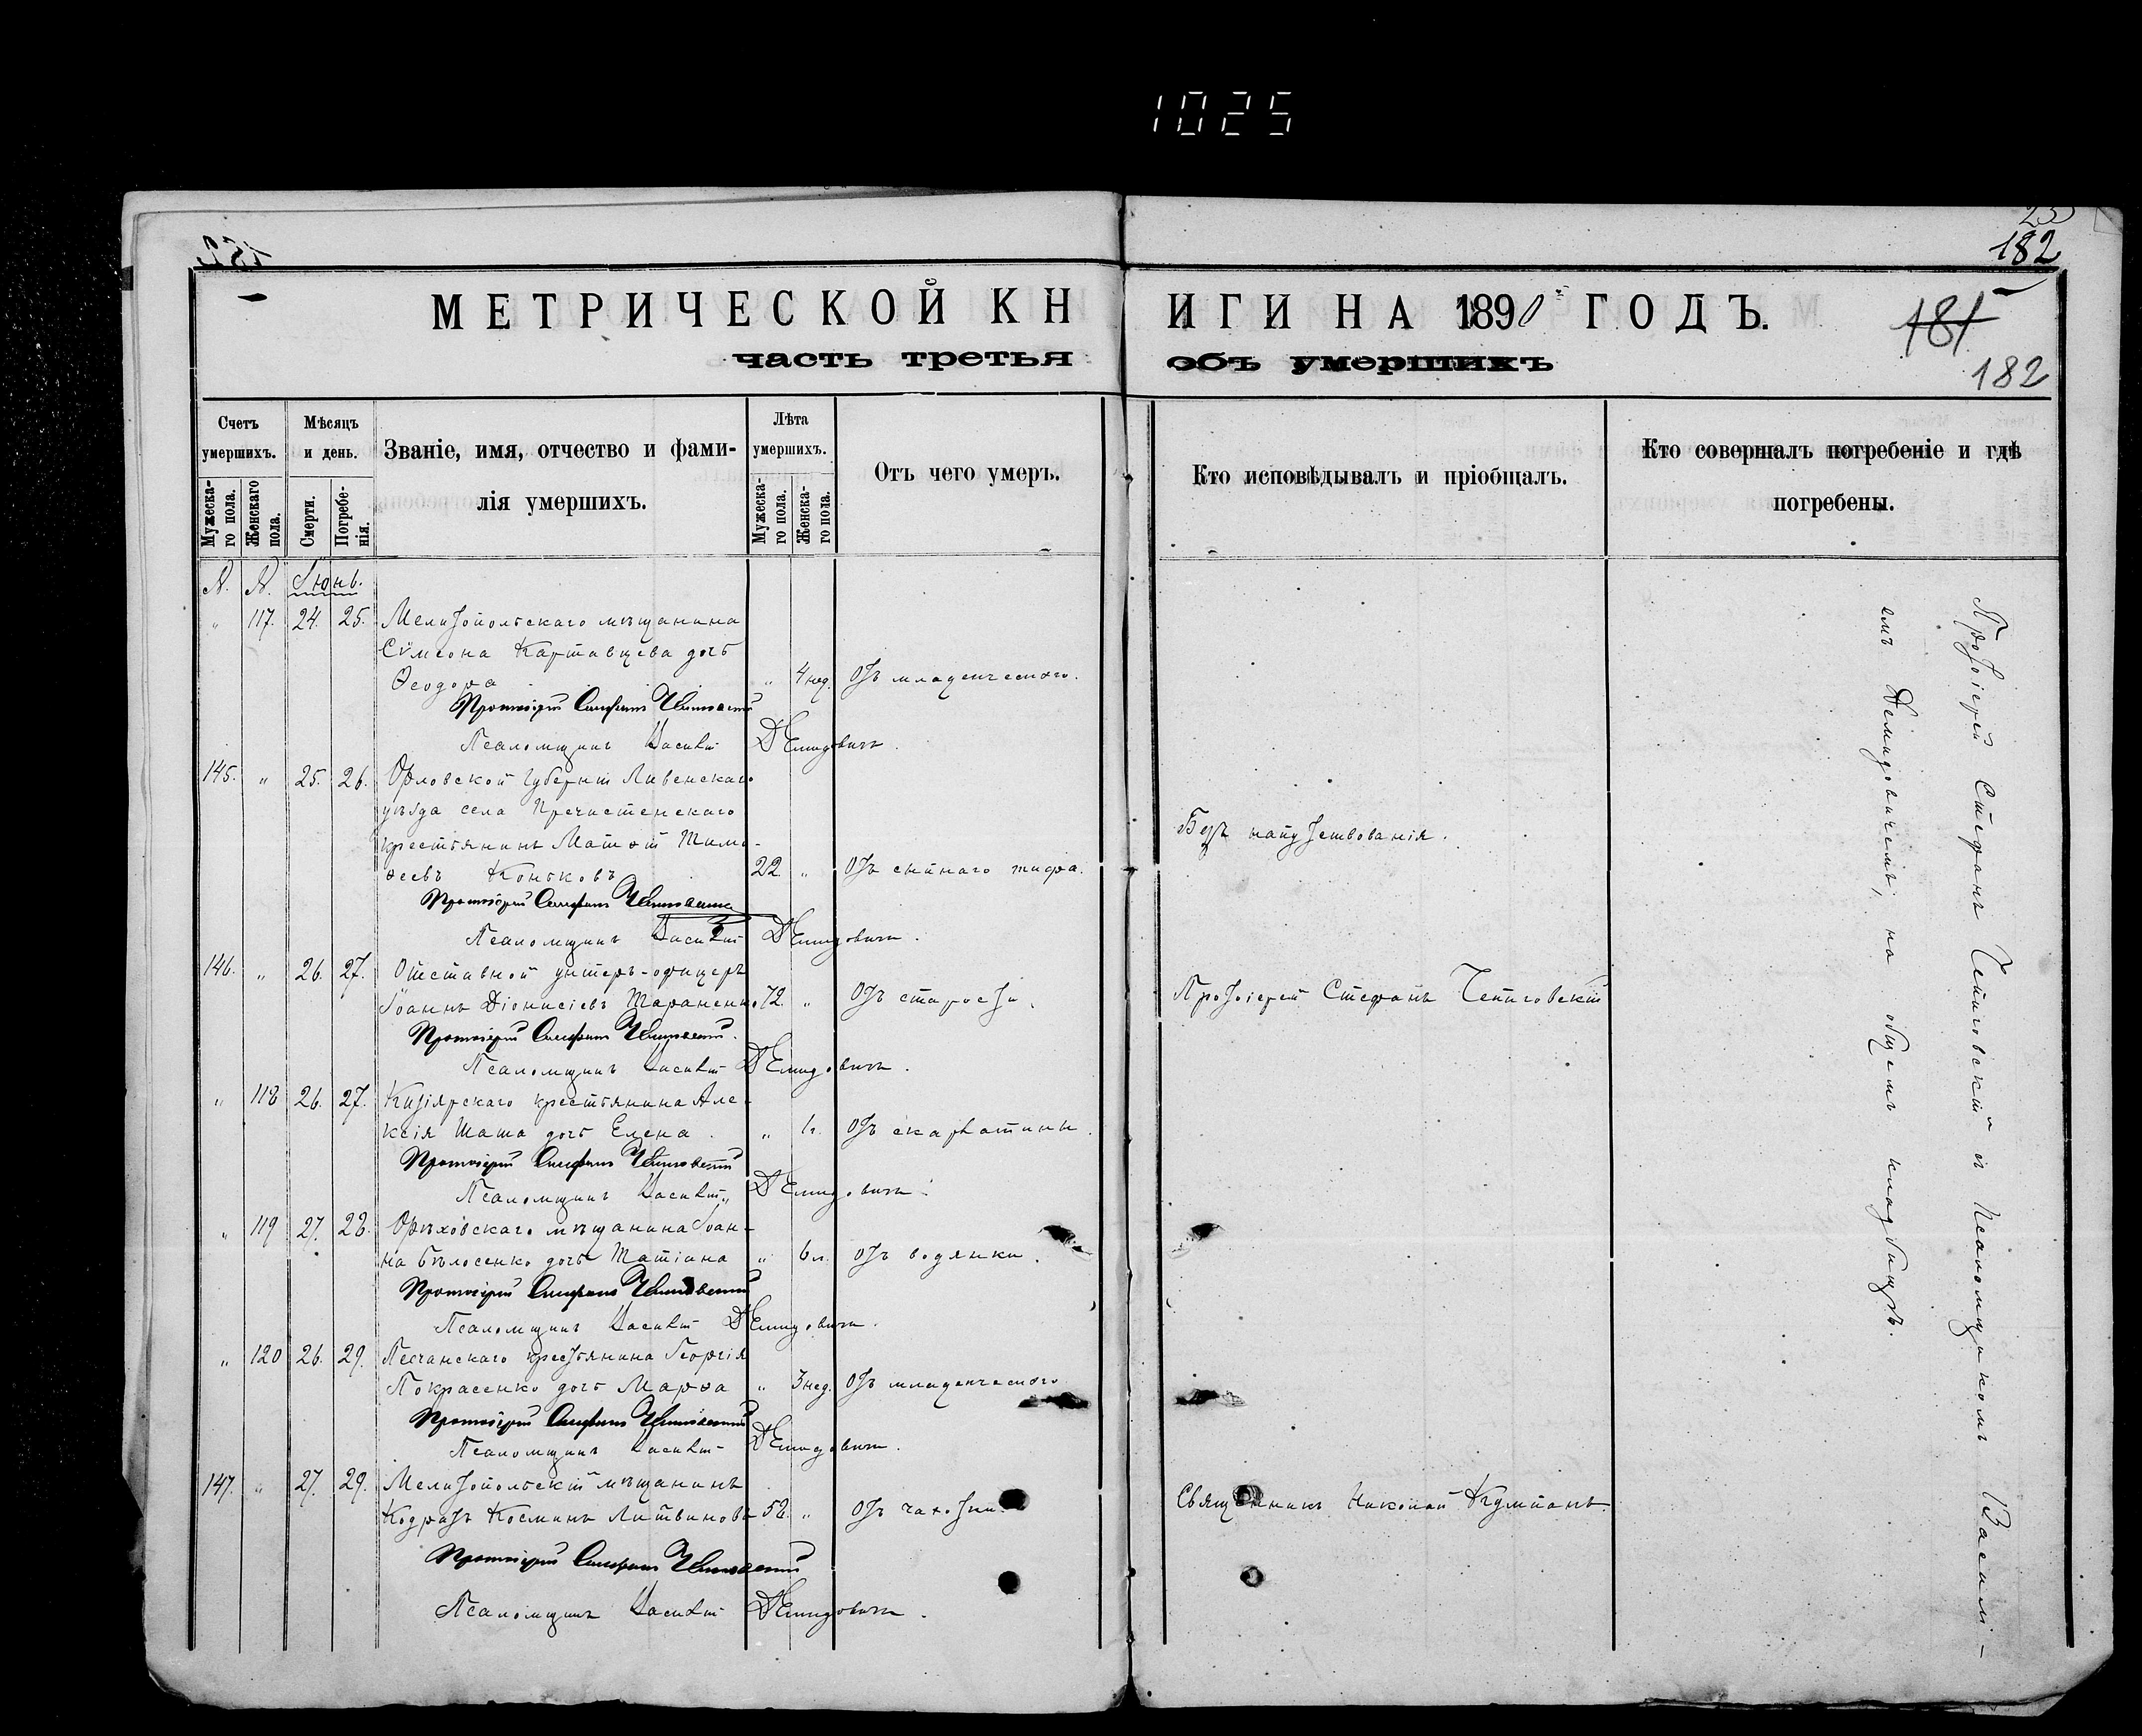 1025
182
МЕТРИЧЕСКОЙ КНИГИ НА 1890 ГОДЪ.
181
часть третья объ умершихъ
182
Счетъ умершихъ.
Мѣсяцъ и день.
Званіе, имя, отчество и фамилія умершихъ.
Лѣта умершихъ.
Отъ чего умеръ.
Кто исповѣдывалъ и пріобщалъ.
Кто совершалъ погребеніе и гдѣ погребены.
Мужескаго пола.
Женскаго пола.
Смерти.
Погребенія.
Мужескаго пола.
Женскаго пола.
№. №. Іюнь.
" 117. 24. 25. Мелитопольскаго мѣщанина
Сѵмеона Картавцева дочь
Ѳеодора " 4 нед. Отъ младенческаго.
Протоіерей Стефанъ
Псаломщикъ Василій Демидовичъ.
145. " 25. 26. Орловской губерніи Ливенскаго
уѣзда села Пречистенскаго
крестьянинъ Матѳій Тимо-
ѳеевъ Коньковъ 22 " Отъ сыпнаго тифа. Безъ напутствованія.
Протоіерей Стефанъ
Псаломщикъ Василій Демидовичъ.
146. " 26. 27. Отставной унтеръ-офицеръ
Іоаннъ Діонисіевъ Тараненко 72 " Отъ старости. Протоіерей Стефанъ
Протоіерей Стефанъ
Псаломщикъ Василій Демидовичъ.
" 118 26. 27. Кизіярскаго крестьянина Але-
ксія Шаша дочь Елена. " 1 г. Отъ скарлатины.
Протоіерей Стефанъ
Псаломщикъ Василій Демидовичъ.
" 119 27. 28. Орѣховскаго мѣщанина Іоан-
на Бѣлосенко дочь Татіана " 6 л. Отъ водянки.
Протоіерей Стефанъ
Псаломщикъ Василій Демидовичъ.
" 120 26. 29. Песчанскаго крестьянина Георгія
Покрасенко дочь Марѳа " 3 нед. Отъ младенческаго
Протоіерей Стефанъ
Псаломщикъ Василій Демидовичъ.
147. " 27. 29. Мелитопольскій мѣщанинъ
Кодратъ Косминъ Литвиновъ 58. " Отъ чахотки. Священникъ Николай
Протоіерей Стефанъ
Псаломщикъ Василій Демидовичъ.
Протоіерей Стефанъ съ Псаломщикомъ Васили-
емъ Демидовичемъ, на общемъ кладбищѣ.